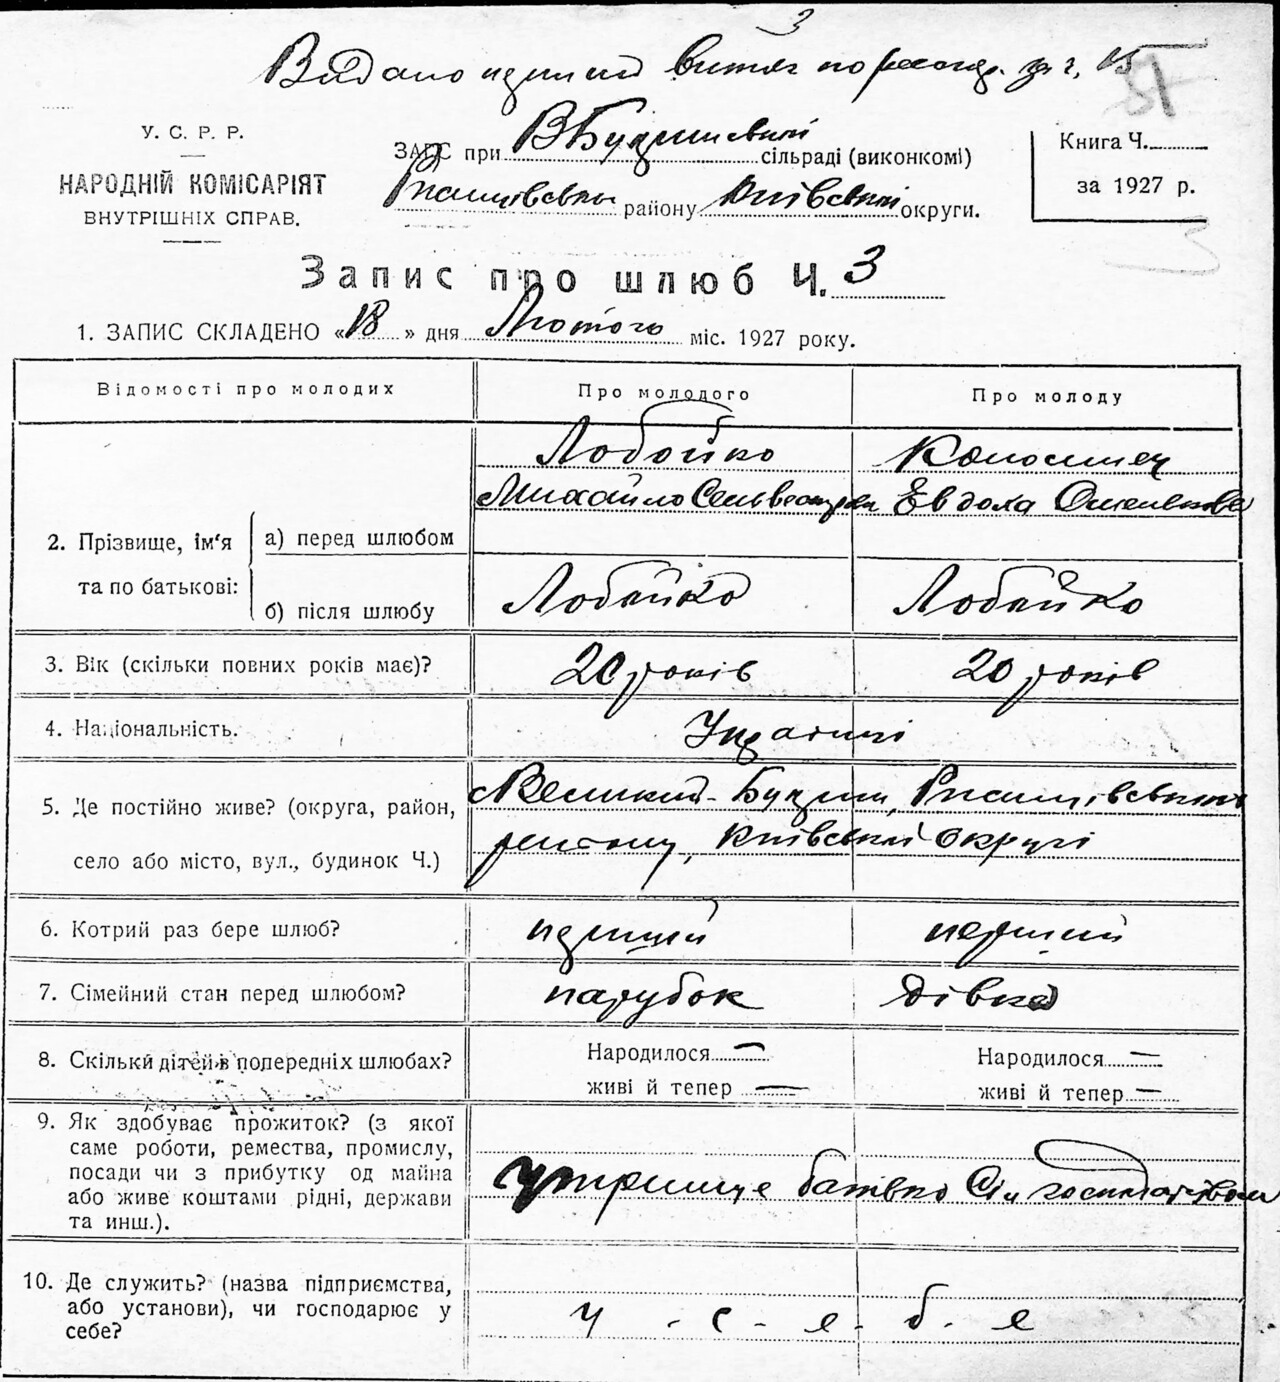 3
Видано перший витяг по за ч. 15
У. С. Р. Р.
НАРОДНІЙ КОМІСАРІЯТ
ВНУТРІШНІХ СПРАВ.
ЗАГС при ВБудищевській сільраді (виконкомі)
району Київської округи.
Книга Ч.
за 1927 р.
Запис про шлюб Ч. 3
1. ЗАПИС СКЛАДЕНО «18» дня Лютого міс. 1927 року.
Відомості про молодих
Про молодого
Про молоду
2. Прізвище, ім'я та по батькові:
а) перед шлюбом
Лобойко
Михайло
Евдоха
б) після шлюбу
Лобойко
Лобойко
3. Вік (скільки повних років має)?
20 років
20 років
4. Національність.
Українці
5. Де постійно живе? (округа, район,
село або місто, вул., будинок Ч.)
Великий-Букрин, Ржищівського
району, Київської Округі
6. Котрий раз бере шлюб?
перший
перший
7. Сімейний стан перед шлюбом?
парубок
дівка
8. Скільки дітей в попередніх шлюбах?
Народилося —
живі й тепер —
Народилося —
живі й тепер —
9. Як здобуває прожиток? (з якої
саме роботи, ремества, промислу,
посади чи з прибутку од майна
або живе коштами рідні, держави
та инш.).
утримує батько Сіл господарством
10. Де служить? (назва підприємства,
або установи), чи господарює у
себе?
у - с - е - б - е